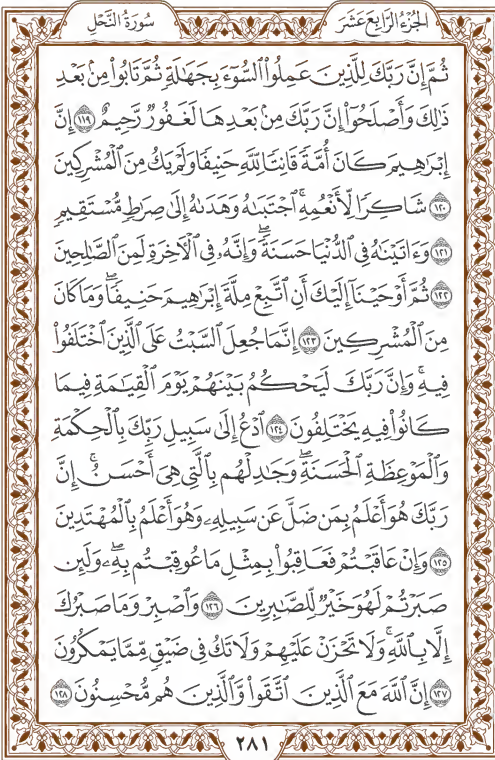 الجُزْءُ الرَّابِعَ عَشَرَ
سُورَةُ النَّحْلِ
ثُمَّ إِنَّ رَبَّكَ لِلَّذِينَ عَمِلُوا۟ ٱلسُّوٓءَ بِجَهَٰلَةٍ ثُمَّ تَابُوا۟ مِنۢ بَعْدِ
ذَٰلِكَ وَأَصْلَحُوٓا۟ إِنَّ رَبَّكَ مِنۢ بَعْدِهَا لَغَفُورٌ رَّحِيمٌ ١١٩ إِنَّ
إِبْرَٰهِيمَ كَانَ أُمَّةً قَانِتًا لِّلَّهِ حَنِيفًا وَلَمْ يَكُ مِنَ ٱلْمُشْرِكِينَ
١٢٠ شَاكِرًا لِّأَنْعُمِهِ ۚ ٱجْتَبَىٰهُ وَهَدَىٰهُ إِلَىٰ صِرَٰطٍ مُّسْتَقِيمٍ
١٢١ وَءَاتَيْنَٰهُ فِى ٱلدُّنْيَا حَسَنَةً ۖ وَإِنَّهُۥ فِى ٱلْءَاخِرَةِ لَمِنَ ٱلصَّٰلِحِينَ
١٢٢ ثُمَّ أَوْحَيْنَآ إِلَيْكَ أَنِ ٱتَّبِعْ مِلَّةَ إِبْرَٰهِيمَ حَنِيفًا ۖ وَمَا كَانَ
مِنَ ٱلْمُشْرِكِينَ ١٢٣ إِنَّمَا جُعِلَ ٱلسَّبْتُ عَلَى ٱلَّذِينَ ٱخْتَلَفُوا۟
فِيهِ ۚ وَإِنَّ رَبَّكَ لَيَحْكُمُ بَيْنَهُمْ يَوْمَ ٱلْقِيَٰمَةِ فِيمَا
كَانُوا۟ فِيهِ يَخْتَلِفُونَ ١٢٤ ٱدْعُ إِلَىٰ سَبِيلِ رَبِّكَ بِٱلْحِكْمَةِ
وَٱلْمَوْعِظَةِ ٱلْحَسَنَةِ ۖ وَجَٰدِلْهُم بِٱلَّتِى هِىَ أَحْسَنُ ۚ إِنَّ
رَبَّكَ هُوَ أَعْلَمُ بِمَن ضَلَّ عَن سَبِيلِهِۦ وَهُوَ أَعْلَمُ بِٱلْمُهْتَدِينَ
١٢٥ وَإِنْ عَاقَبْتُمْ فَعَاقِبُوا۟ بِمِثْلِ مَا عُوقِبْتُم بِهِۦ ۖ وَلَئِن
صَبَرْتُمْ لَهُوَ خَيْرٌ لِّلصَّٰبِرِينَ ١٢٦ وَٱصْبِرْ وَمَا صَبْرُكَ
إِلَّا بِٱللَّهِ ۚ وَلَا تَحْزَنْ عَلَيْهِمْ وَلَا تَكُ فِى ضَيْقٍ مِّمَّا يَمْكُرُونَ
١٢٧ إِنَّ ٱللَّهَ مَعَ ٱلَّذِينَ ٱتَّقَوا۟ وَّٱلَّذِينَ هُم مُّحْسِنُونَ ١٢٨
٢٨١